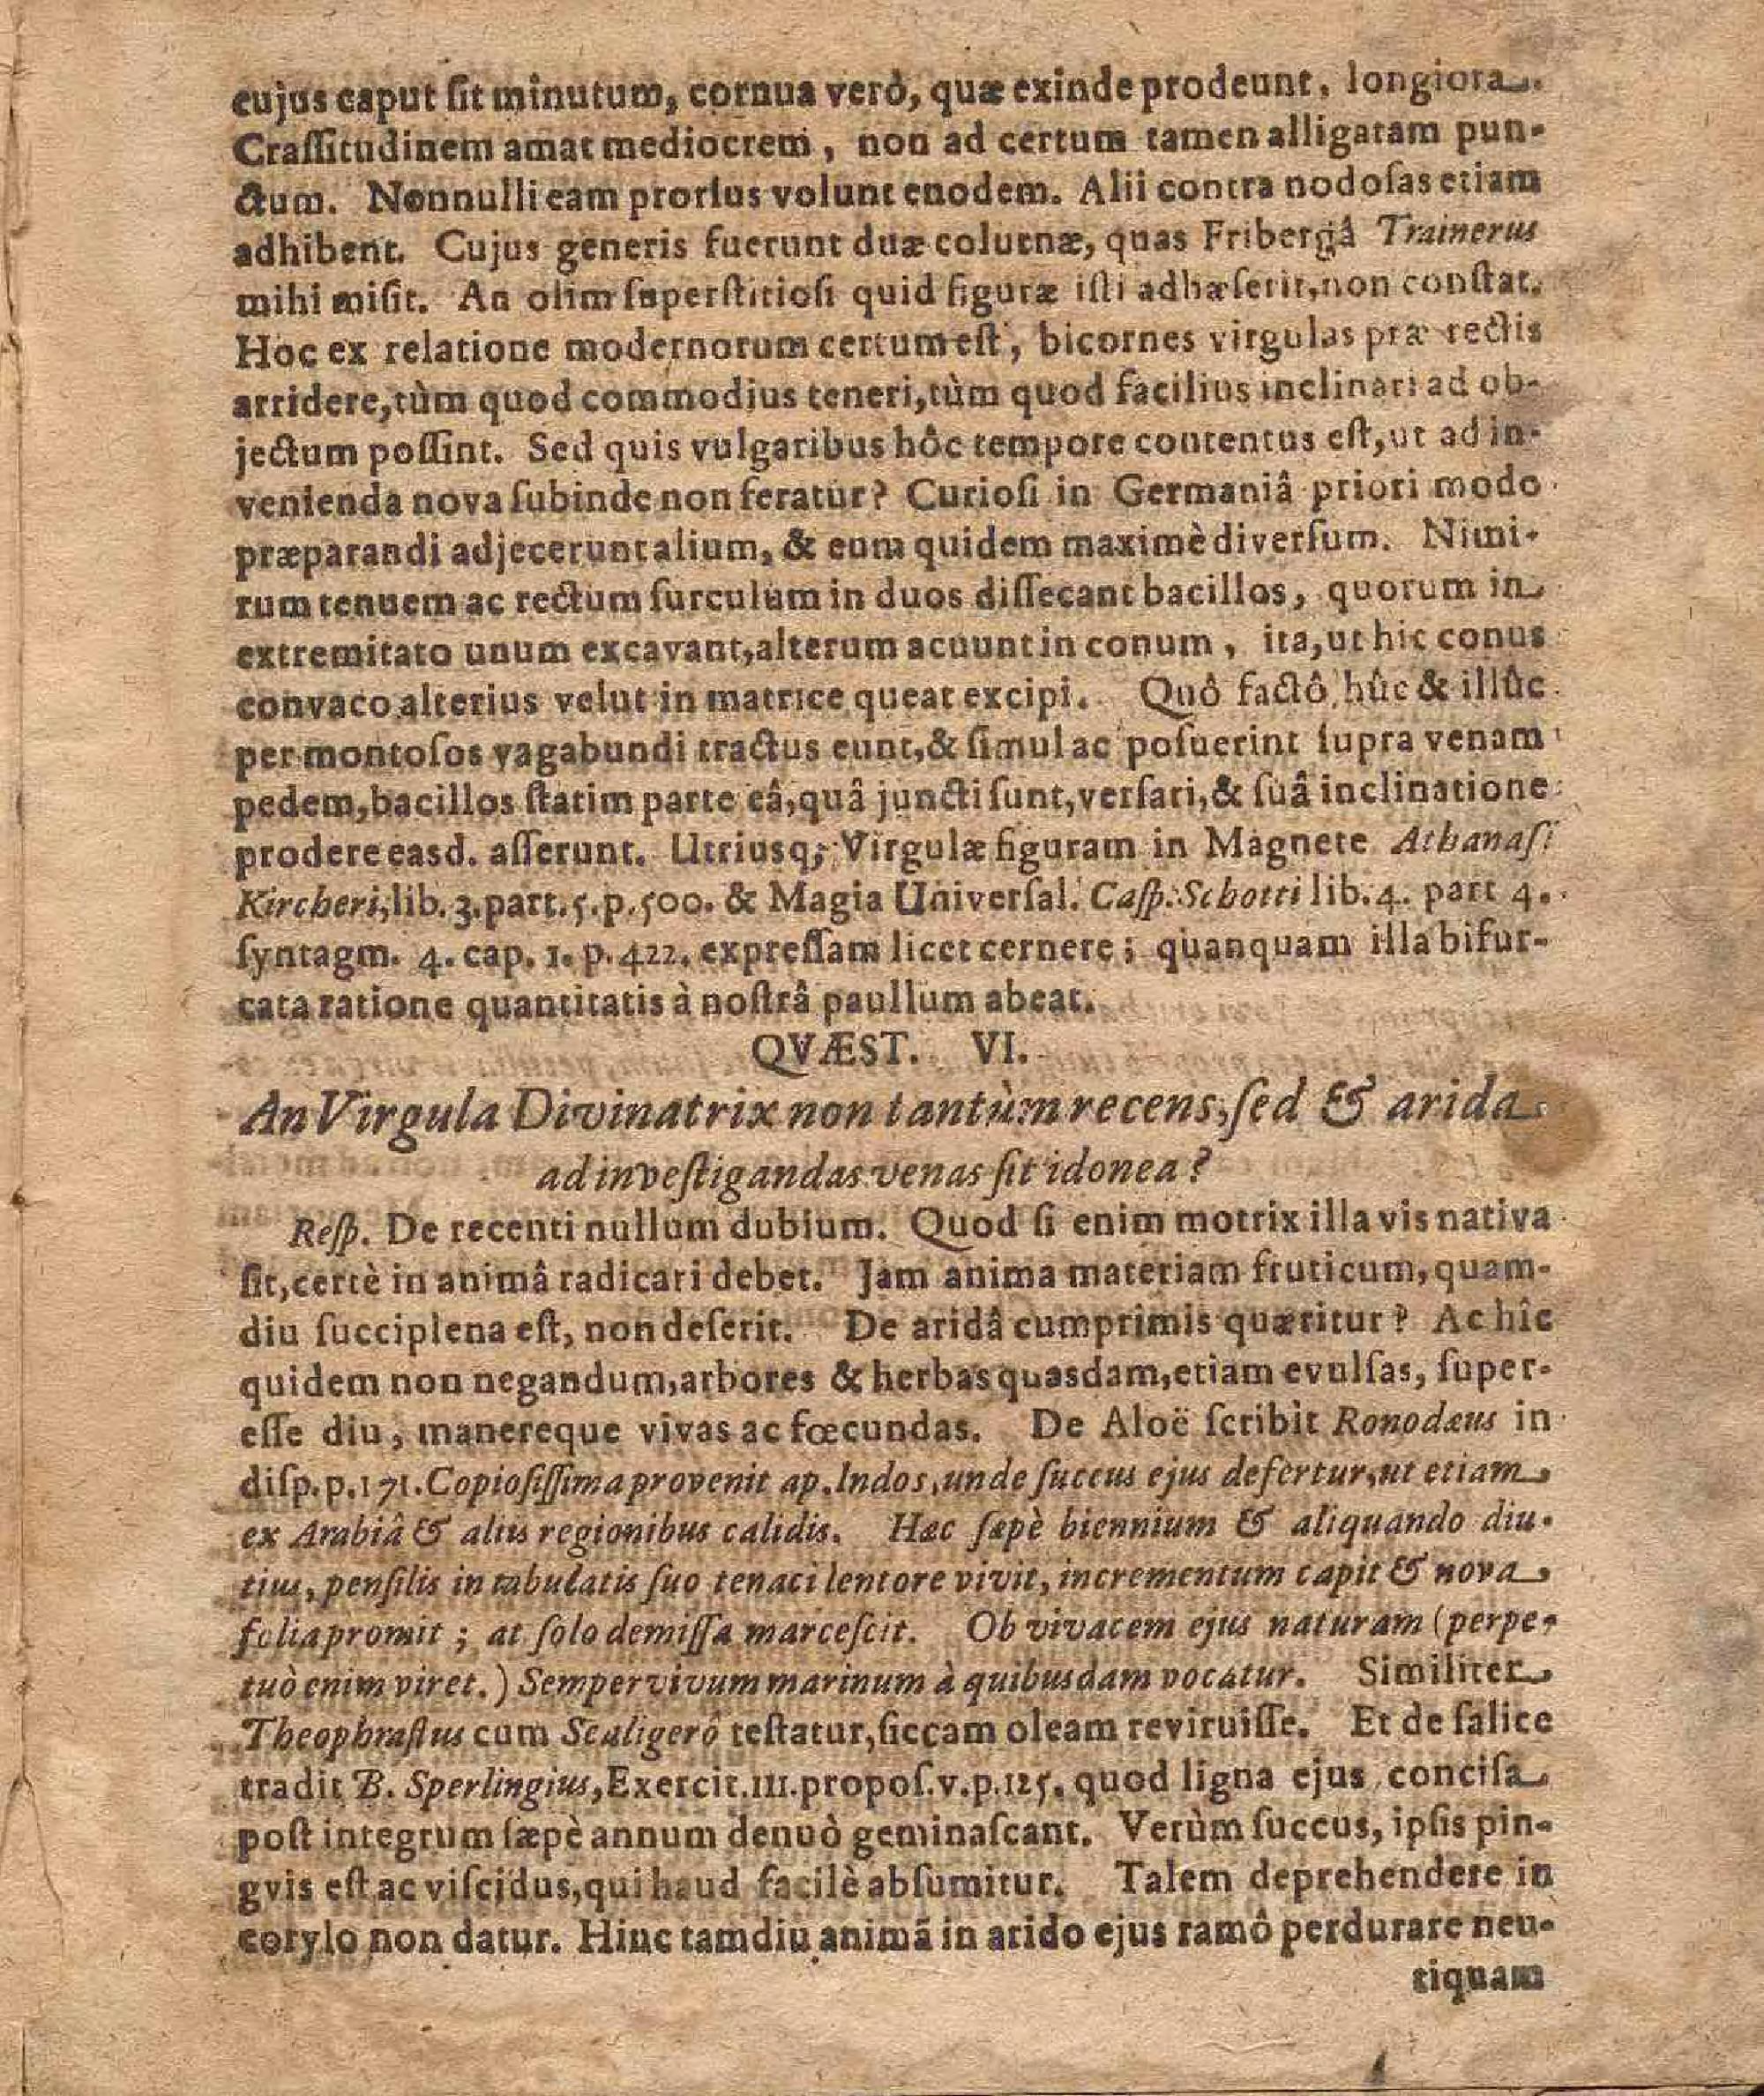 cujus caput ſit minutum, cornua verò, quæ exinde prodeunt, longiora.
Craſſitudinem amat mediocrem, non ad certum tamen alligatam pun-
ctum. Nonnulli eam prorſus volunt enodem. Alii contra nodoſas etiam
adhibent. Cujus generis fuerunt duæ colurnæ, quas Fribergâ Trainerus
mihi miſit. An olim ſuperſtitioſi quid figuræ iſti adhæſerit, non conſtat.
Hoc ex relatione modernorum certum eſt, bicornes virgulas præ rectis
arridere, tùm quod commodius teneri, tùm quod facilius inclinari ad ob-
jectum poſſint. Sed quis vulgaribus hôc tempore contentus eſt, ut ad in-
venienda nova ſubinde non feratur? Curioſi in Germaniâ priori modo
præparandi adjecerunt alium, & eum quidem maximè diverſum. Nimi-
rum tenuem ac rectum ſurculum in duos diſſecant bacillos, quorum in
extremitato unum excavant, alterum acuunt in conum, ita, ut hic conus
convaco alterius velut in matrice queat excipi. Quô factô, hûc & illûc
per montoſos vagabundi tractus eunt, & ſimul ac poſuerint ſupra venam
pedem, bacillos ſtatim parte eâ, quâ juncti ſunt, verſari, & ſuâ inclinatione
prodere easd. aſſerunt. Utriusq; Virgulæ figuram in Magnete Athanaſi
Kircheri, lib. 3. part. 5. p. 500. & Magia Univerſal. Caſp. Schotti lib. 4. part 4.
ſyntagm. 4. cap. 1. p. 422. expreſſam licet cernere; quanquam illa bifur-
cata ratione quantitatis à noſtrâ paullum abeat.
QVÆST. VI.
An Virgula Divinatrix non tantùm recens, ſed & arida
ad inveſtigandas venas ſit idonea?
Reſp. De recenti nullum dubium. Quod ſi enim motrix illa vis nativa
ſit, certè in animâ radicari debet. Jam anima materiam fruticum, quam-
diu ſucciplena eſt, non deſerit. De aridâ cumprimis quæritur? Ac hîc
quidem non negandum, arbores & herbas quasdam, etiam evulſas, ſuper-
eſſe diu, manereque vivas ac fœcundas. De Aloë ſcribit Ronodæus in
diſp. p. 171. Copioſiſſima provenit ap. Indos, unde ſuccus ejus defertur, ut etiam
ex Arabiâ & aliis regionibus calidis. Hæc ſæpè biennium & aliquando diu-
tius, penſilis in tabulatis ſuo tenaci lentore vivit, incrementum capit & nova
folia promit; at ſolo demiſſa marceſcit. Ob vivacem ejus naturam (perpe-
tuò enim viret.) Sempervivum marinum à quibusdam vocatur. Similiter
Theophraſtus cum Scaligerô teſtatur, ſiccam oleam reviruiſſe. Et de ſalice
tradit B. Sperlingius, Exercit. III. propoſ. v. p. 125. quod ligna ejus conciſa
poſt integrum ſæpè annum denuò geminaſcant. Verùm ſuccus, ipſis pin-
gvis eſt ac viſcidus, qui haud facilè abſumitur. Talem deprehendere in
corylo non datur. Hinc tamdiu animã in arido ejus ramô perdurare neu-
tiquam